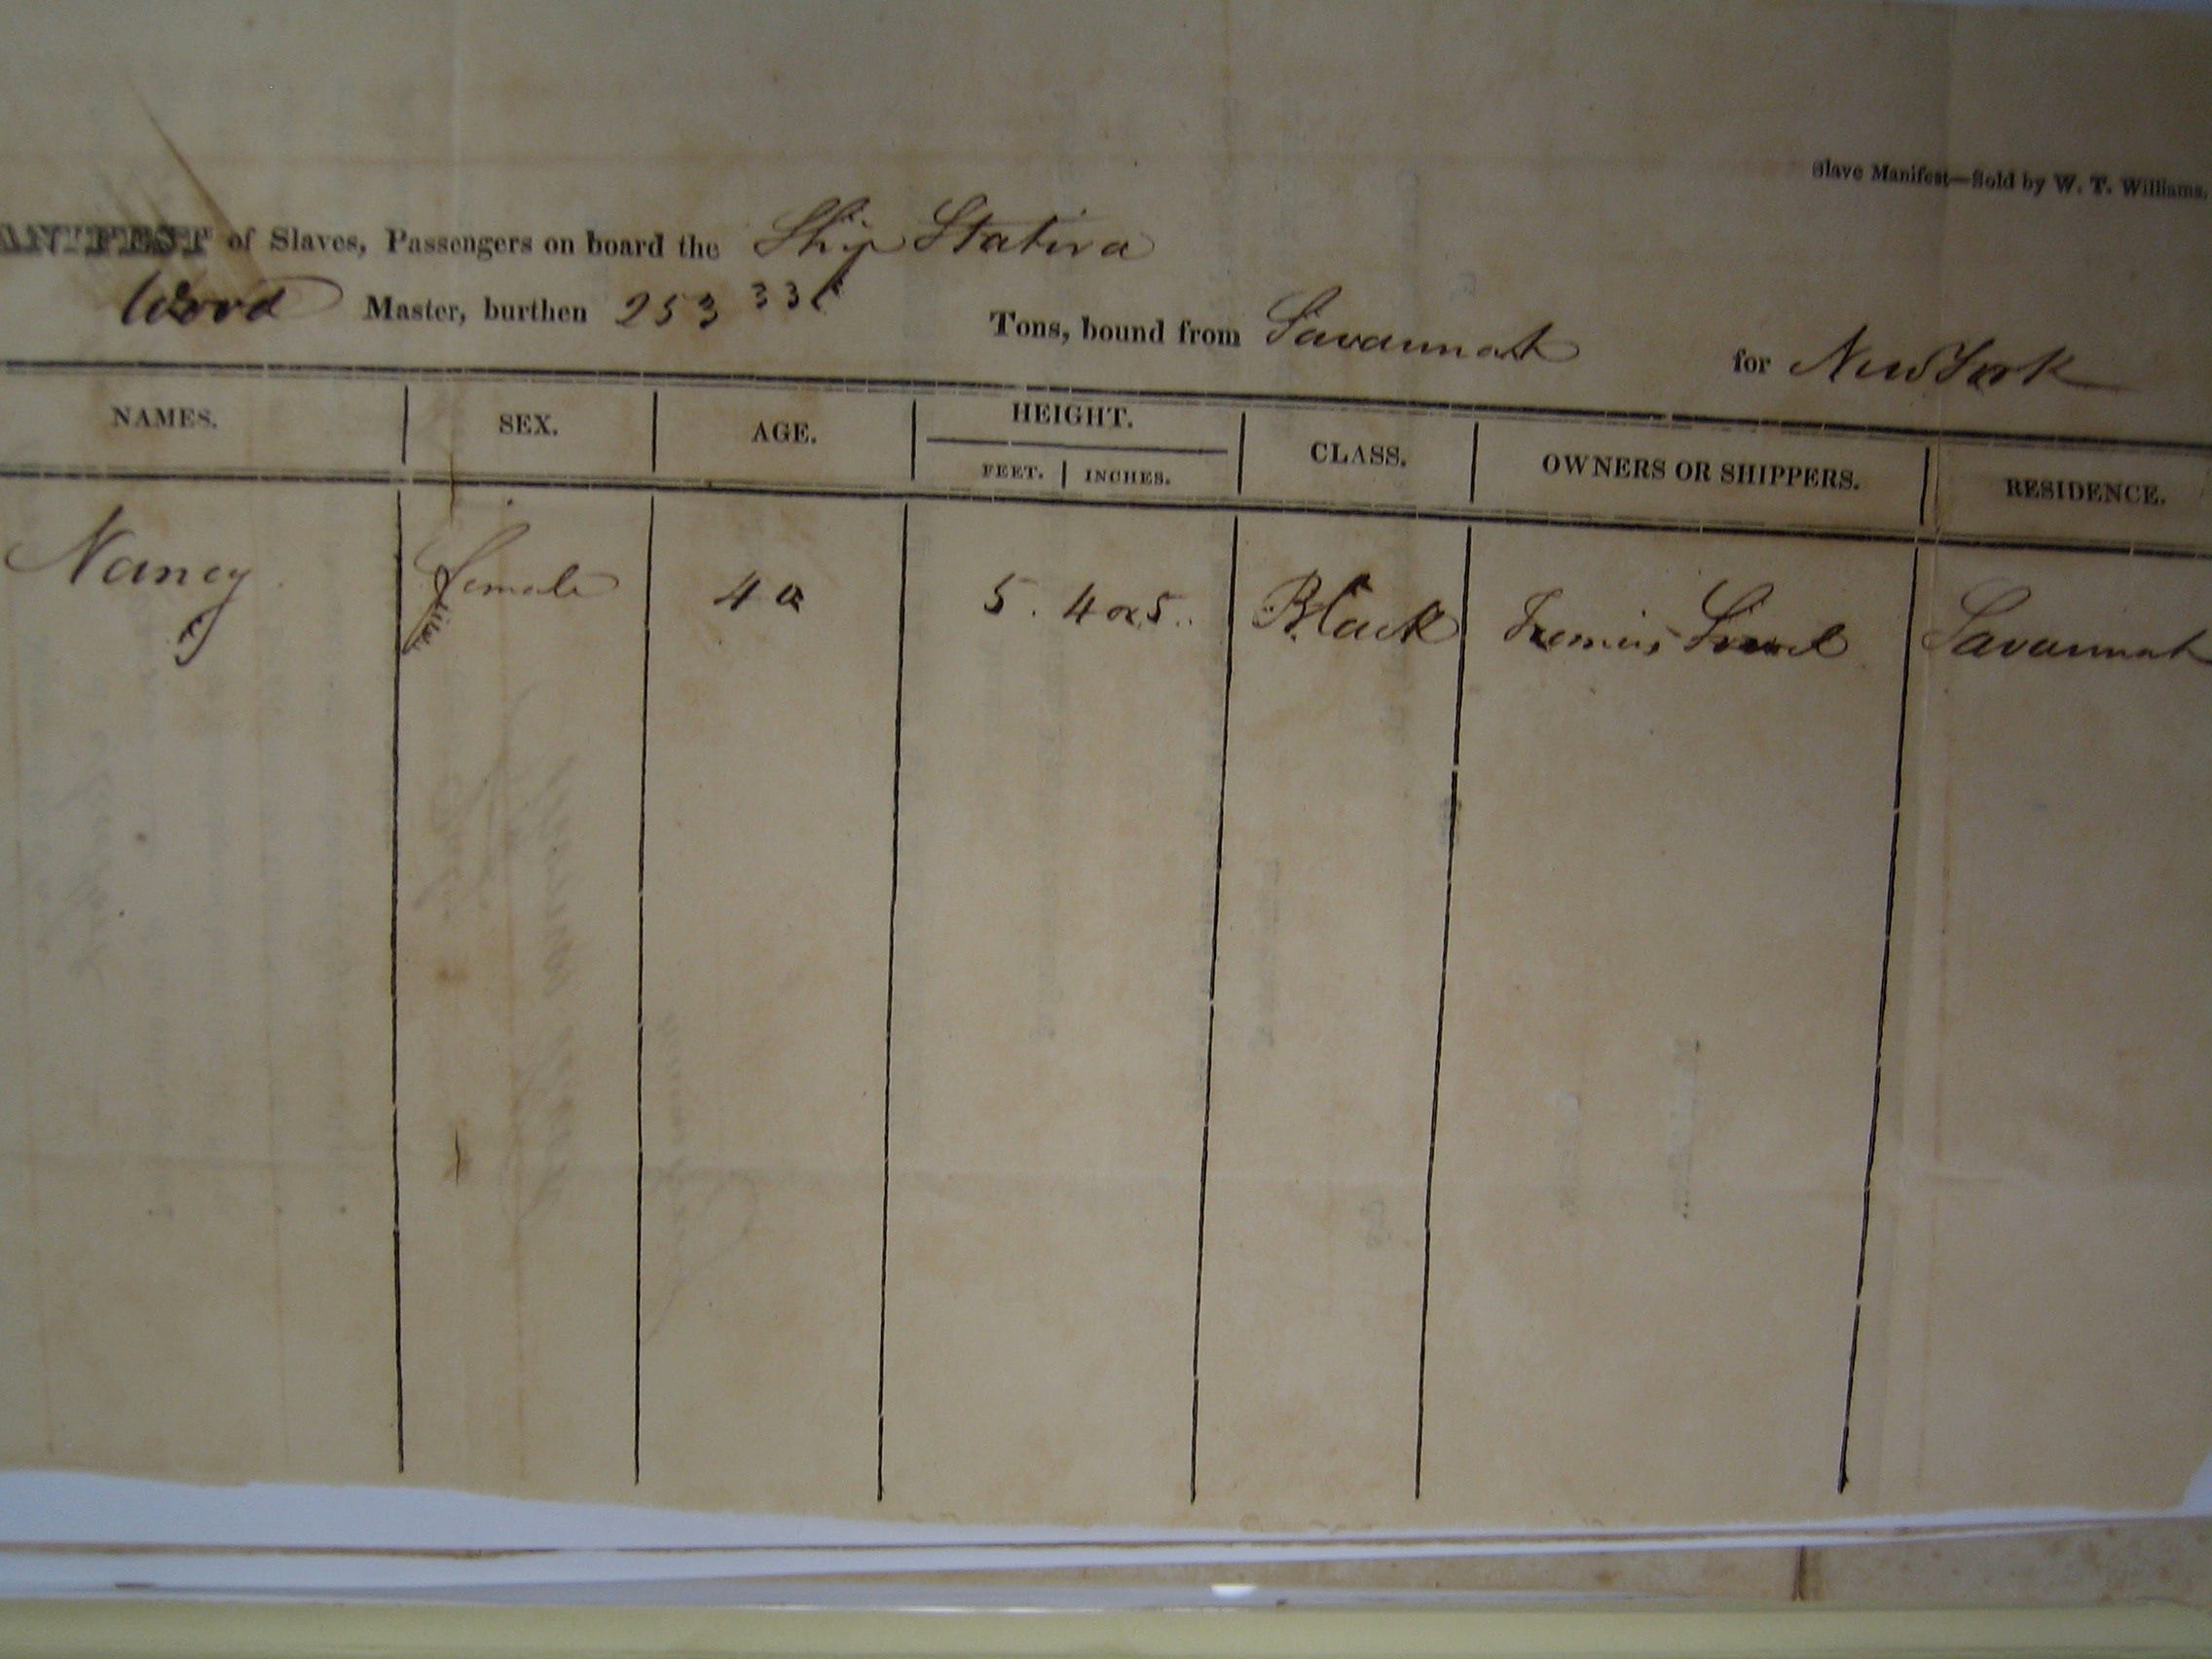 Slave Manifest—Sold by W. T. Williams.
ANIFEST of Slaves, Passengers on board the Ship Statira
Wood Master, burthen 253 33 Tons, bound from Savannah for New York
NAMES. SEX. AGE. HEIGHT. FEET. INCHES. CLASS. OWNERS OR SHIPPERS. RESIDENCE.
Nancy female 40 5. 4 or 5.. Black Francis Savannah